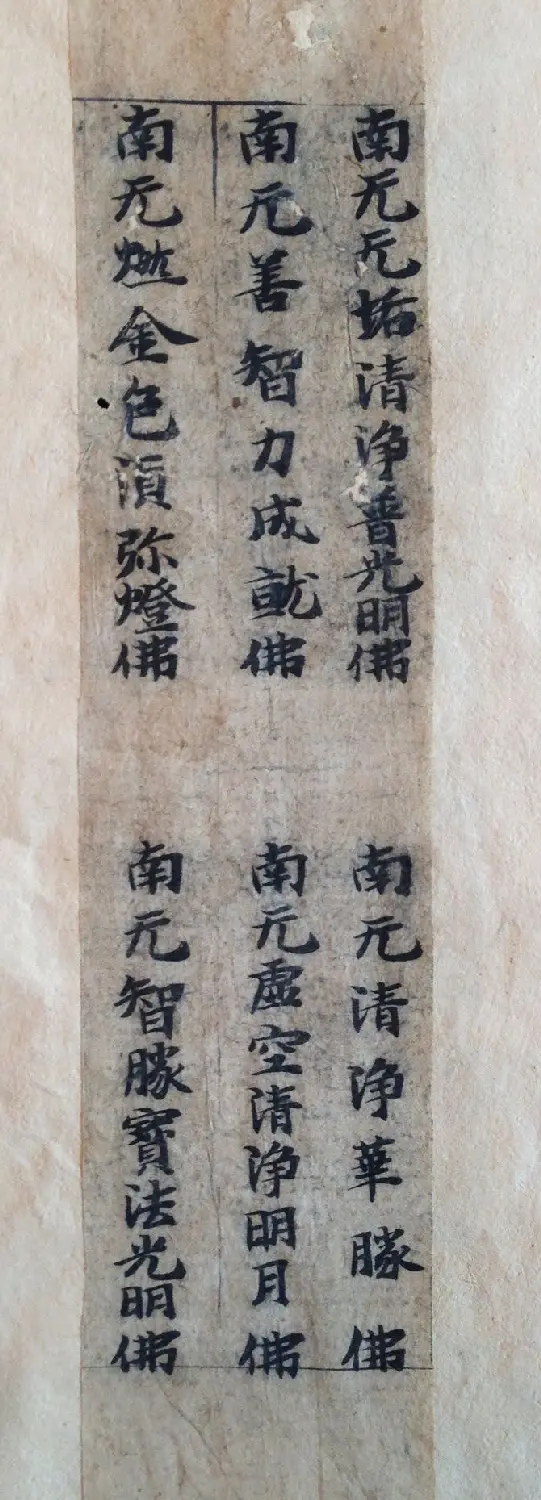 南无无垢清浄普光明佛
南无清浄華勝佛
南无善智力成就佛
南无虛空清浄明月佛
南无燃金色湏弥燈佛
南无智勝寳法光明佛